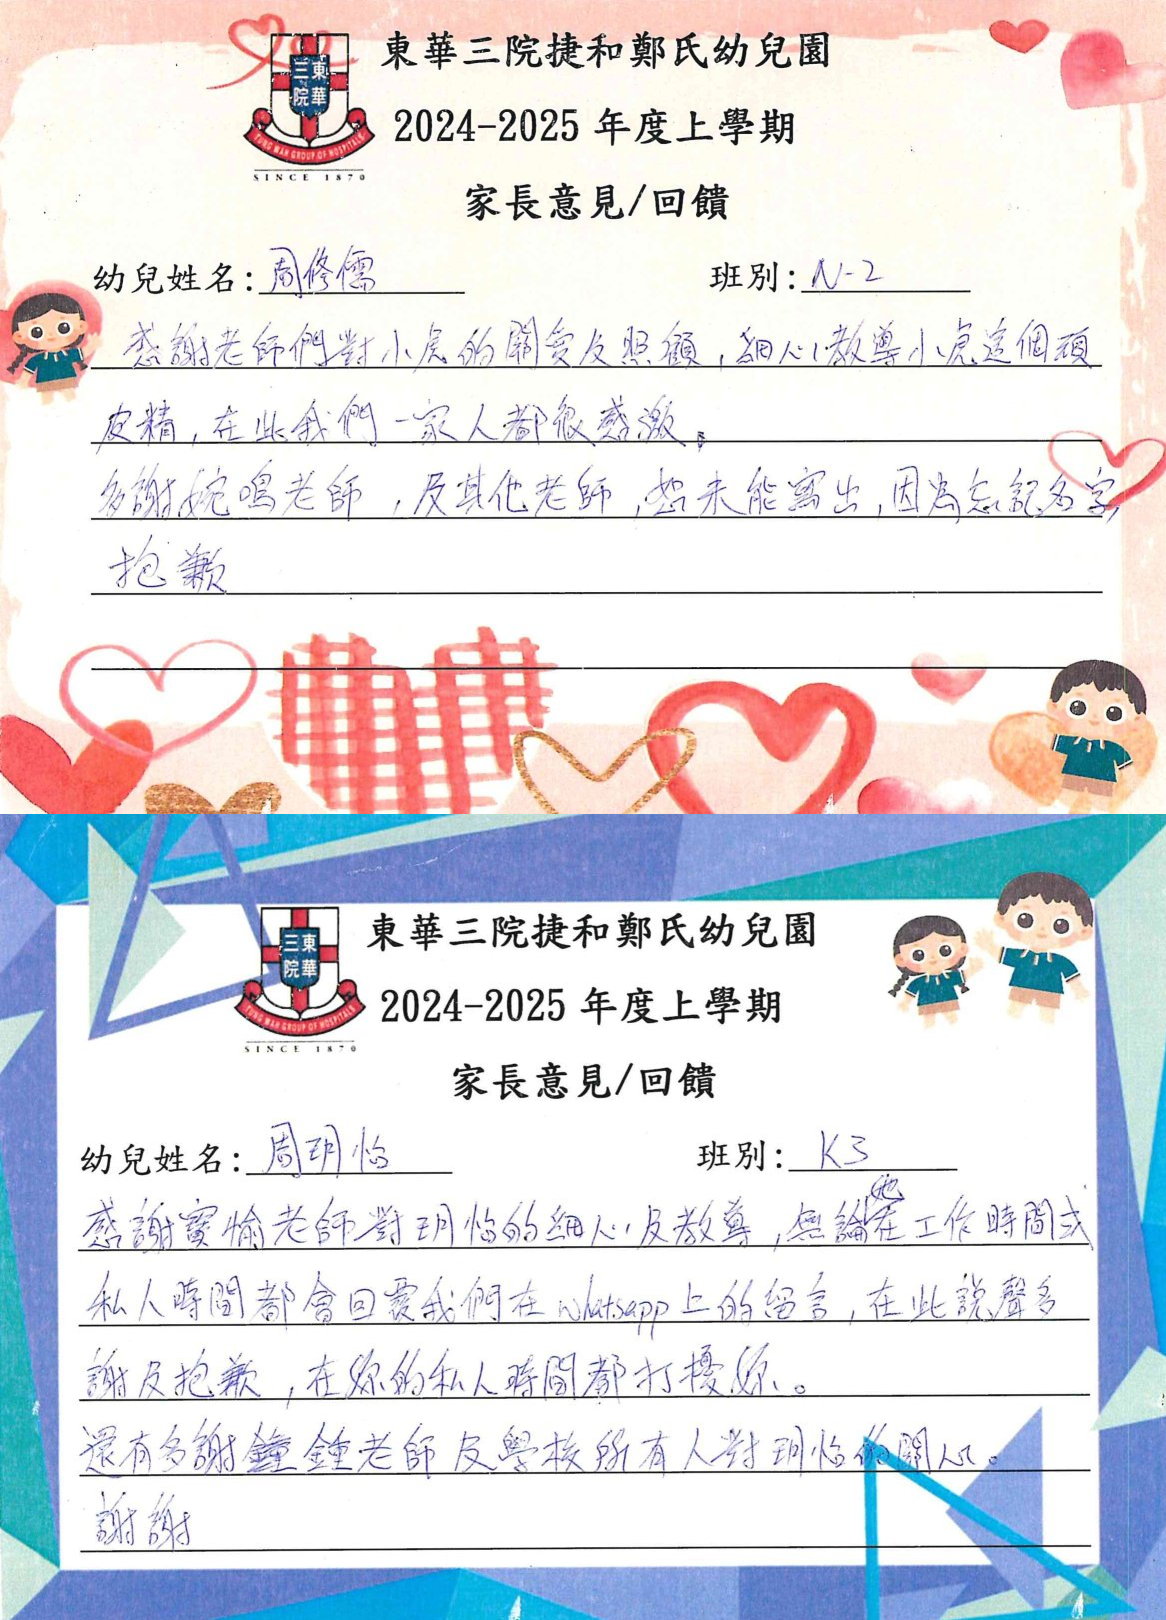 東華三院捷和鄭氏幼兒園
2024-2025 年度上學期
家長意見/回饋
三東
院華
TUNG WAH GROUP OF HOSPITALS
SINCE 1870
幼兒姓名: 周修儒 班別: N-2
感謝老師們對小虎的關愛及照顧,細心教導小虎這個頑
皮精,在此我們一家人都很感激。
多謝婉鳴老師,及其他老師,恕未能寫出,因為忘記名字
抱歉
東華三院捷和鄭氏幼兒園
2024-2025 年度上學期
家長意見/回饋
三東
院華
TUNG WAH GROUP OF HOSPITALS
SINCE 1870
幼兒姓名: 周玥怡 班別: K3
感謝寶愉老師對玥怡的細心及教導,無論她在工作時間或
私人時間都會回覆我們在whatsapp上的留言,在此說聲多
謝及抱歉,在妳的私人時間都打擾妳。
還有多謝鍾老師及學校所有人對玥怡的關心。
謝謝